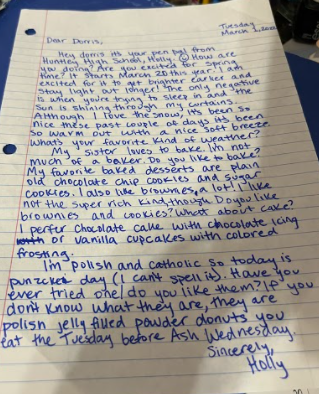 Tuesday
March 1, 2022
Dear Dorris,
Hey dorris its your pen pal from
Huntley High School, Holly ☺ How are
you doing? Are you excited for spring
time? It starts March 20 this year. I am
excited for it to get brighter earlier and
stay light out longer! The only negative
is when you're trying to sleep in and the
sun is shining through my curtains.
Although I love the snow, its been so
nice these past couple of days its been
so warm out with a nice soft breeze
Whats your favorite kind of weather?
My sister loves to bake I'm not
much of a baker. Do you like to bake?
My favorite baked desserts are plain
old chocolate chip cookies and sugar
cookies. I also like brownies, a lot! I like
not the super rich kind, though. Do you like
brownies and cookies? What about cake?
I perfer chocolate cake with chocolate icing
or vanilla cupcakes with colored
frosting.
I'm polish and catholic so today is
punzckee day (I can't spell it). Have you
ever tried one/do you like them? If you
don't know what they are, they are
polish jelly filled powder donuts you
eat the Tuesday before Ash Wednesday.
Sincerely,
Holly